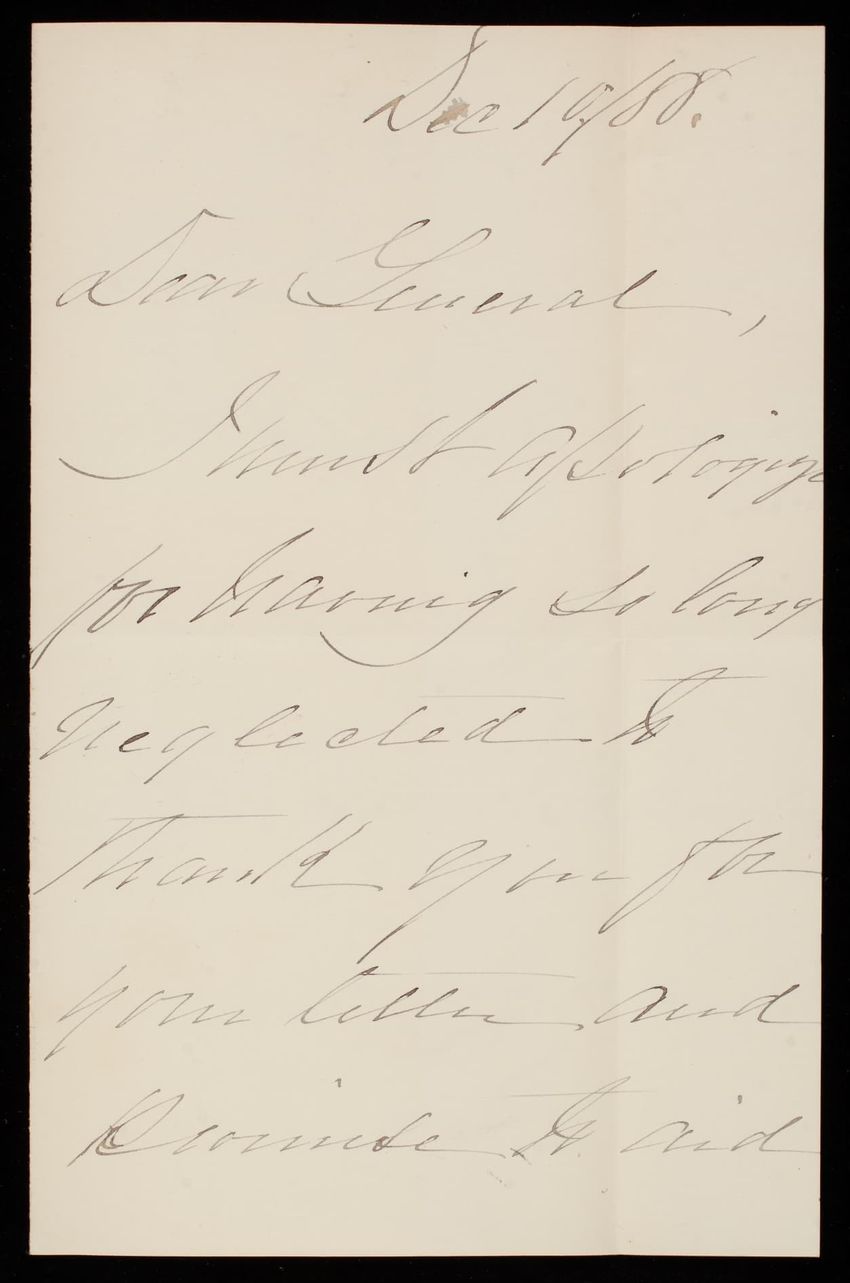 Dec 19/88.
Dear General,
I must apologize
for having so long
neglected to
thank you for
your letter and
promise to aid